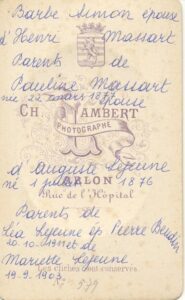 Barbe Simon épouse
d'Henri Massart
Parents de
Pauline Massart
née 22 mars 1877
épouse
CH. LAMBERT
PHOTOGRAPHE
d'Auguste Lejeune
né 1 1876
ARLON
Rue de l'Hôpital
Parents de
Léa Lejeune ép Pierre
20.10. et de
Mariette Lejeune
19.9.1903
Les clichés sont conservés.
579